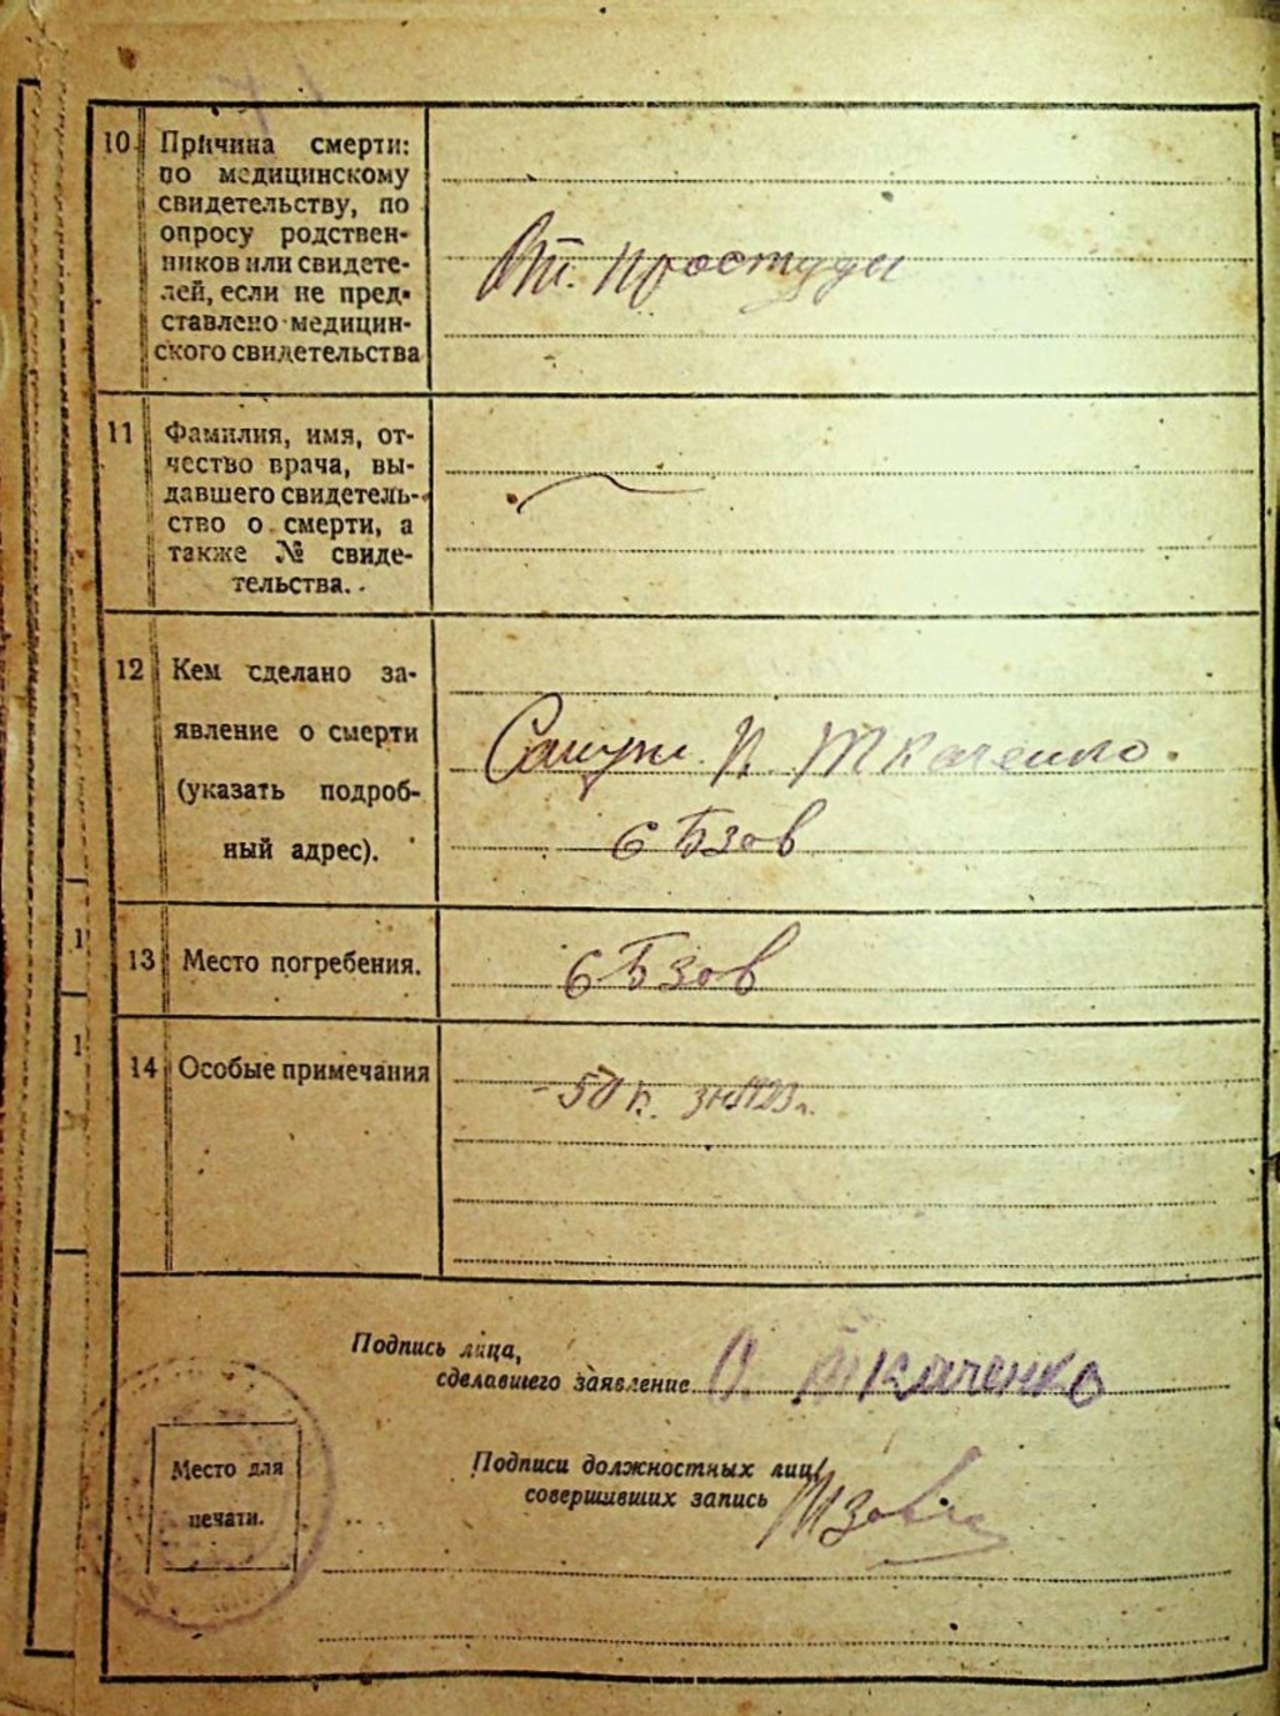 10 Причина смерти:
по медицинскому
свидетельству, по
опросу родствен-
ников или свидете-
лей, если не пред-
ставлено медицин-
ского свидетельства
От. простуды
11 Фамилия, имя, от-
чество врача, вы-
давшего свидетель-
ство о смерти, а
также № свиде-
тельства.
12 Кем сделано за-
явление о смерти
(указать подроб-
ный адрес).
П. Ткаченко.
с Бзов
13 Место погребения.
с Бзов
14 Особые примечания
- 50 к.
Подпись лица,
сделавшего заявление
О. Ткаченко
Подписи должностных лиц,
совершивших запись
Место для
печати.